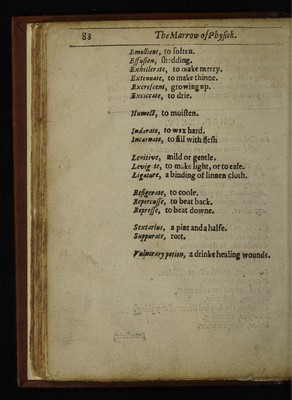 88 The Marrow of Physick.
Emollient, to soften.
Effusion, shedding.
Exhilerate, to make merry.
Extenuate, to make thinne.
Excrescent, growing up.
Exsiccate, to drie.
Humect, to moisten.
Indurate, to wax hard.
Incarnate, to fill with flesh
Lenitive, mild or gentle.
Levigate, to make light, or to ease.
Ligature, a binding of linnen cloth.
Refrigerate, to coole.
Repercusse, to beat back.
Represse, to beat downe.
Sextarius, a pint and a halfe.
Suppurate, rott.
Vulnerary potion, a drinke healing wounds.